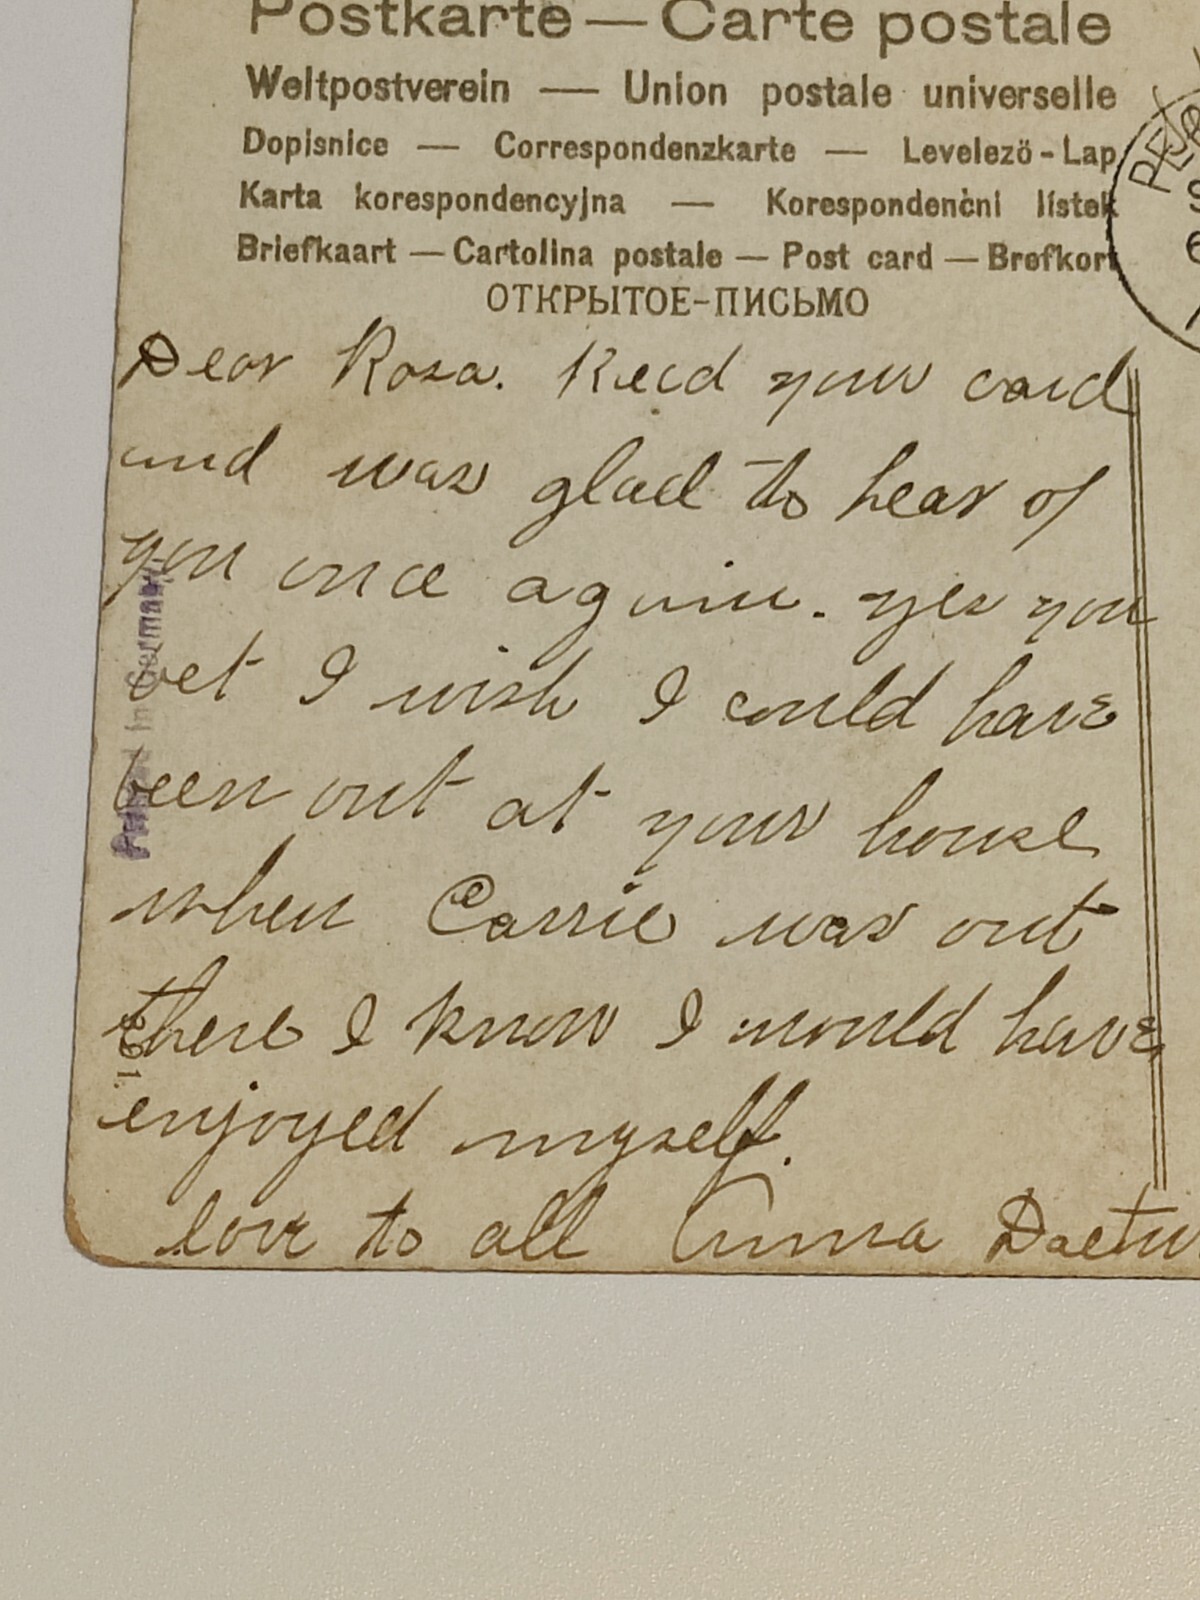 Postkarte — Carte postale
Weltpostverein — Union postale universelle
Dopisnice — Correspondenzkarte — Levelezö-Lap
Karta korespondencyjna — Korespondenčni lístek
Briefkaart — Cartolina postale — Post card — Brefkort
ОТКРЫТОЕ-ПИСЬМО
Dear Rosa. Recd your card
and was glad to hear of
you once again. yes you
bet I wish I could have
been out at your house
when Carrie was out
there I know I would have
enjoyed myself.
love to all Anna
Printed in Germany